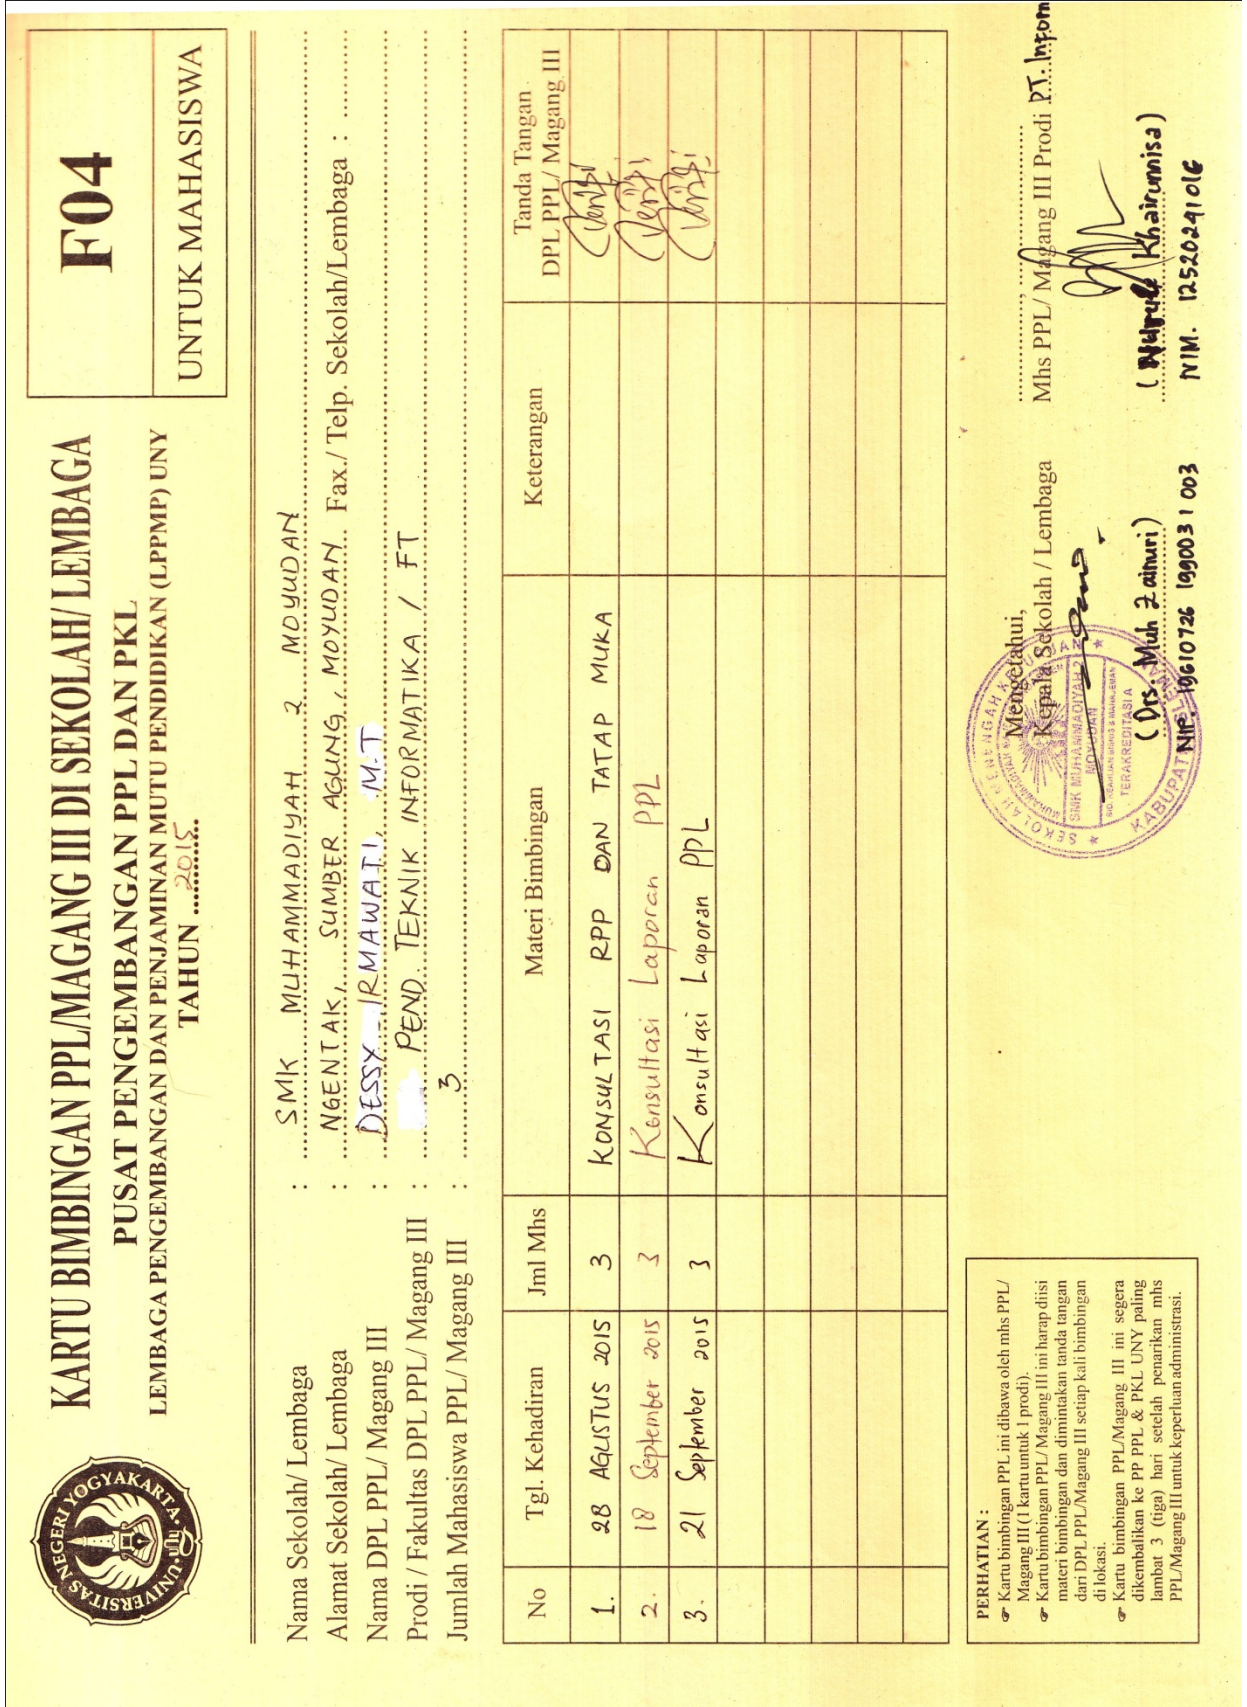 UNIVERSITAS NEGERI YOGYAKARTA
KARTU BIMBINGAN PPL/MAGANG III DI SEKOLAH/ LEMBAGA
PUSAT PENGEMBANGAN PPL DAN PKL
LEMBAGA PENGEMBANGAN DAN PENJAMINAN MUTU PENDIDIKAN (LPPMP) UNY
TAHUN 2015
F04
UNTUK MAHASISWA
Nama Sekolah/ Lembaga : SMK MUHAMMADIYAH 2 MOYUDAN
Alamat Sekolah/ Lembaga : NGENTAK, SUMBER AGUNG, MOYUDAN Fax./ Telp. Sekolah/Lembaga :
Nama DPL PPL/ Magang III : DESSY IRMAWATI, M.T
Prodi / Fakultas DPL PPL/ Magang III : PEND. TEKNIK INFORMATIKA / FT
Jumlah Mahasiswa PPL/ Magang III : 3
No Tgl. Kehadiran Jml Mhs Materi Bimbingan Keterangan Tanda Tangan DPL PPL/ Magang III
1. 28 AGUSTUS 2015 3 KONSULTASI RPP DAN TATAP MUKA
2. 18 September 2015 3 Konsultasi Laporan PPL
3. 21 September 2015 3 Konsultasi Laporan PPL
PERHATIAN :
☞ Kartu bimbingan PPL ini dibawa oleh mhs PPL/
Magang III (1 kartu untuk 1 prodi).
☞ Kartu bimbingan PPL/ Magang III ini harap diisi
materi bimbingan dan dimintakan tanda tangan
dari DPL PPL/Magang III setiap kali bimbingan
di lokasi.
☞ Kartu bimbingan PPL/Magang III ini segera
dikembalikan ke PP PPL & PKL UNY paling
lambat 3 (tiga) hari setelah penarikan mhs
PPL/Magang III untuk keperluan administrasi.
Mengetahui,
Kepala Sekolah / Lembaga
SEKOLAH MENENGAH KEJURUAN
SMK MUHAMMADIYAH 2
MOYUDAN
TERAKREDITASI A
KABUPATEN SLEMAN
(Drs. Muh Zainuri)
NIP. 19610726 199003 1 003
Mhs PPL/ Magang III Prodi PT. Inform
(Nurul Khairunnisa)
NIM. 12520241016